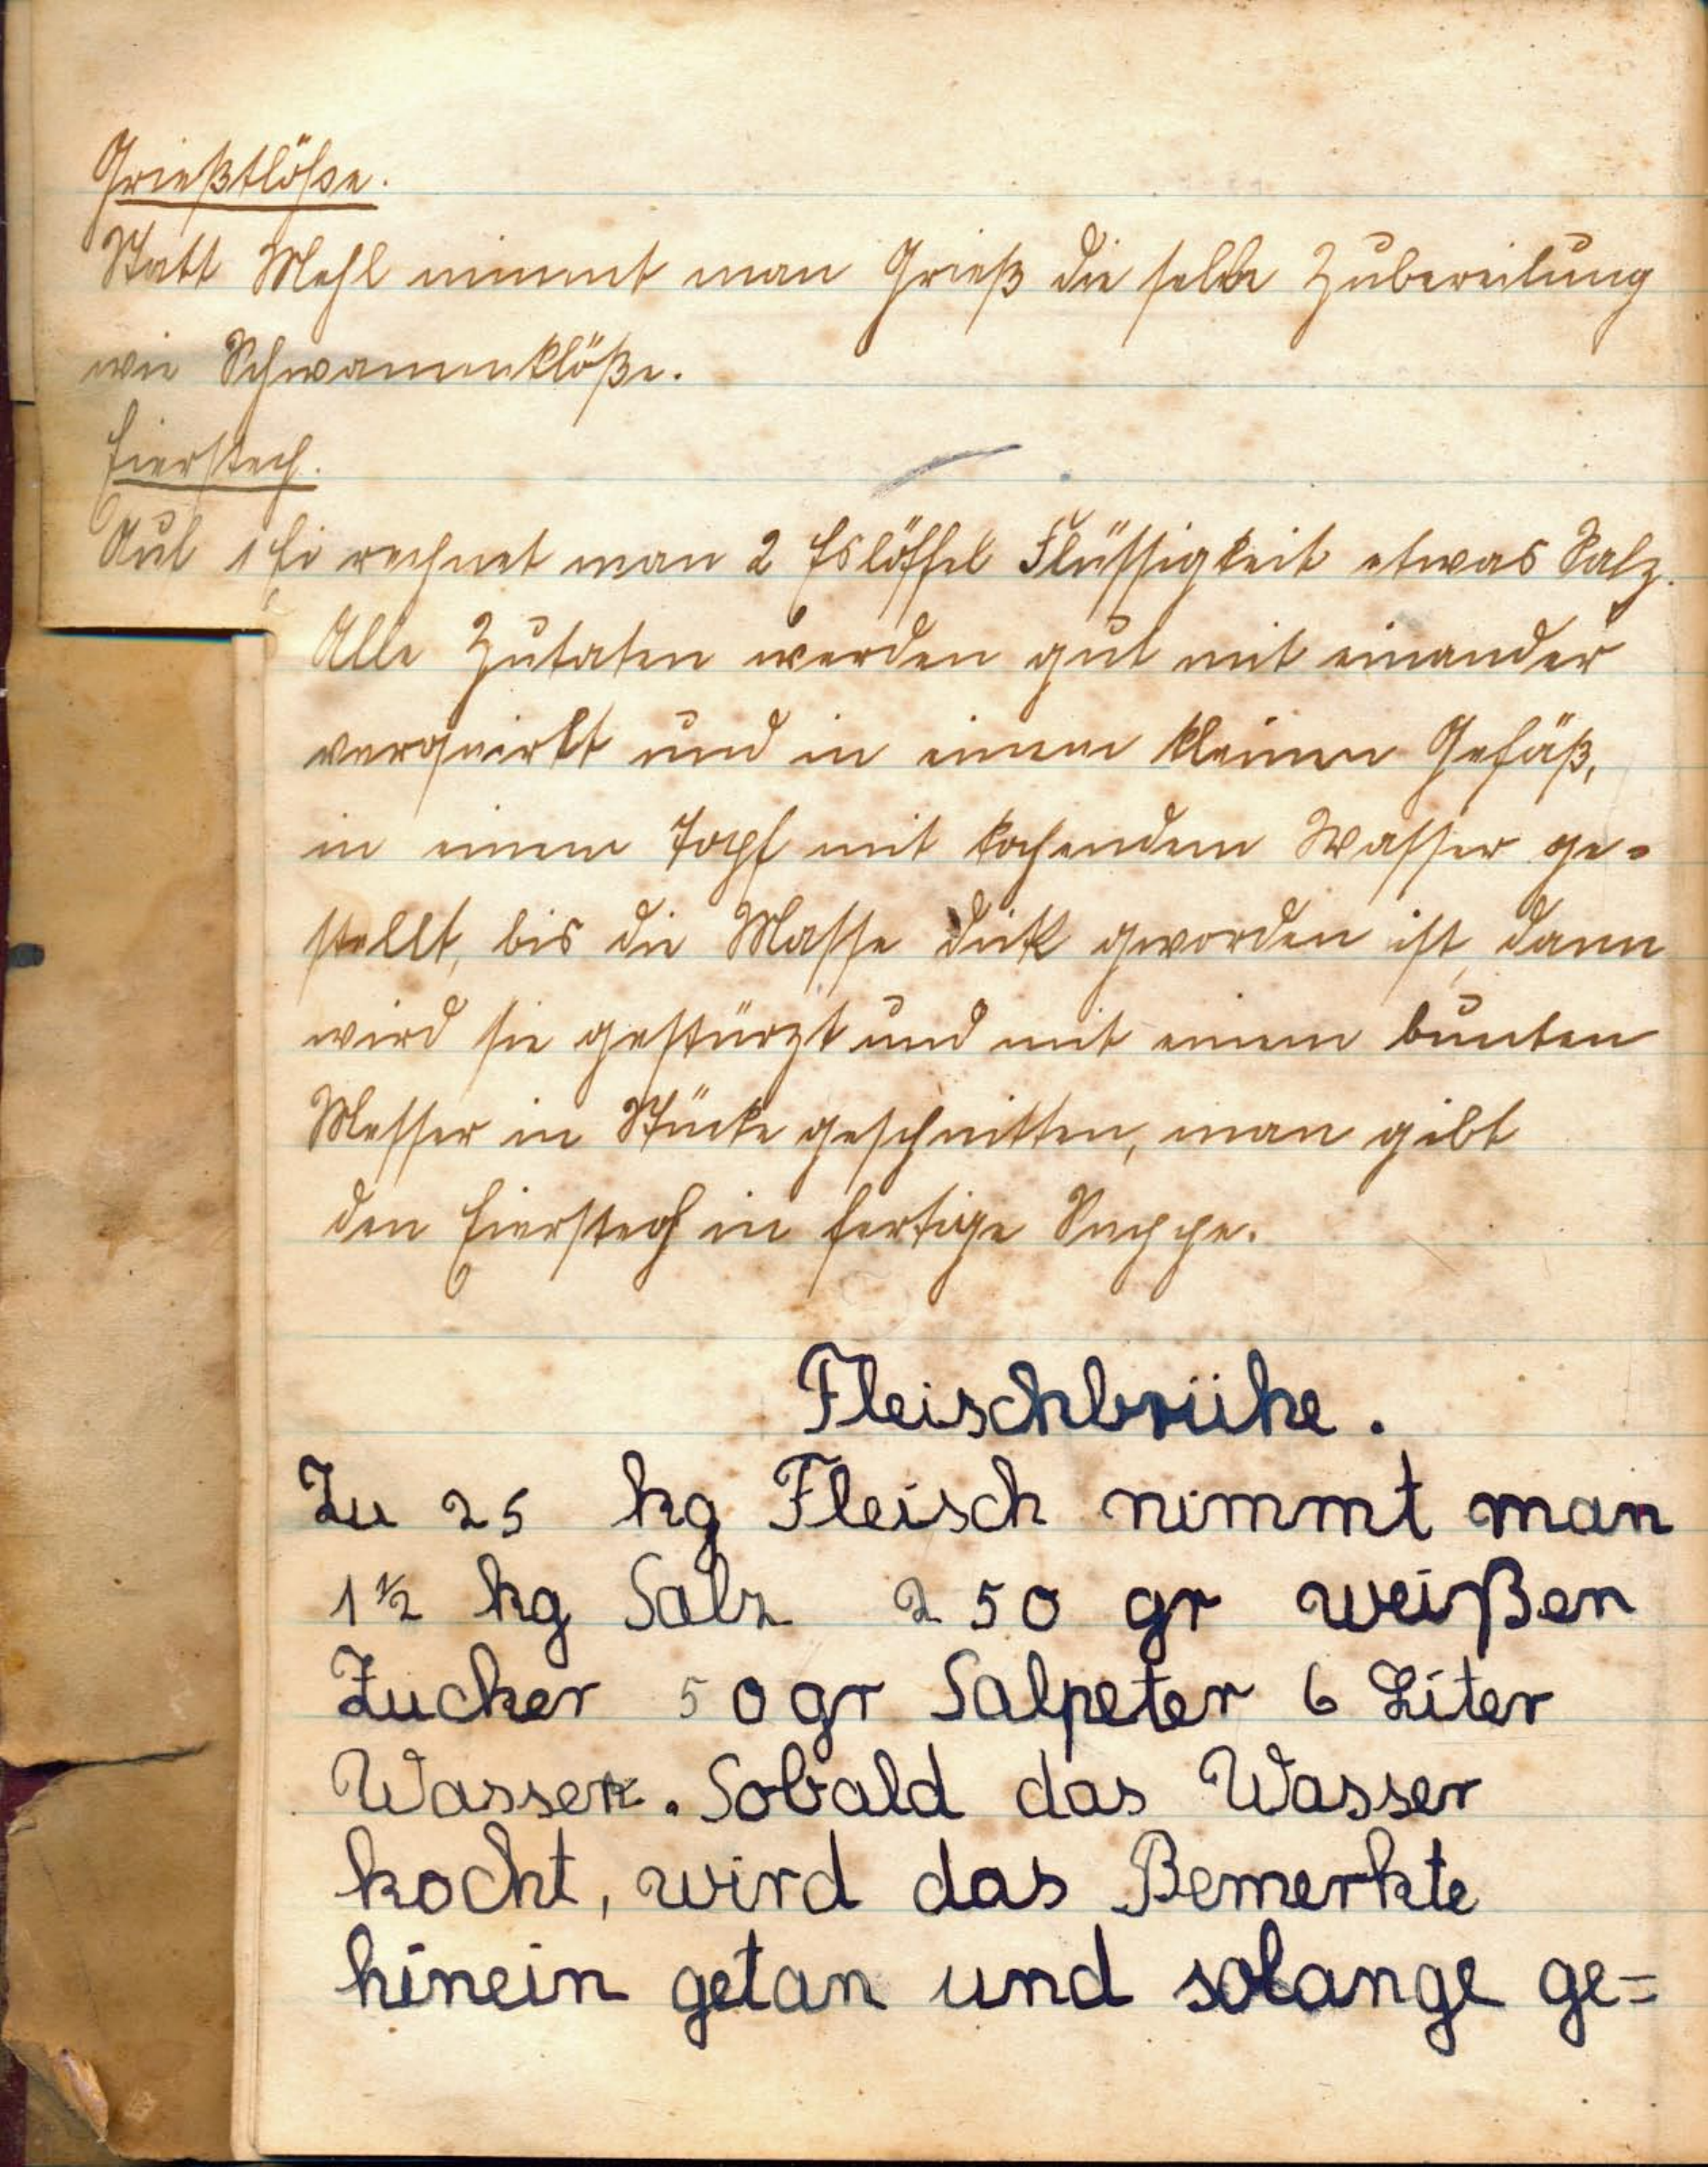 Grießklöße.
Statt Mehl nimmt man Grieß die selbe Zubereitung
wie Schwammklöße.
Eierstech.
Auf 1 Ei rechnet man 2 Eslöffel Flüssigkeit etwas Salz.
Alle Zutaten werden gut mit einander
verquirlt und in einem kleinen Gefäß,
in einem Topf mit kochendem Wasser ge=
stellt, bis die Masse dick geworden ist, dann
wird sie gestürzt und mit einem bunten
Messer in Stücke geschnitten, man gibt
den Eierstech in fertige Suppe.
Fleischbrühe.
Zu 25 kg Fleisch nimmt man
1½ kg Salz 250 gr weißen
Zucker 50gr Salpeter 6 Liter
Wasser. Sobald das Wasser
kocht, wird das Bemerkte
hinein getan und solange ge=